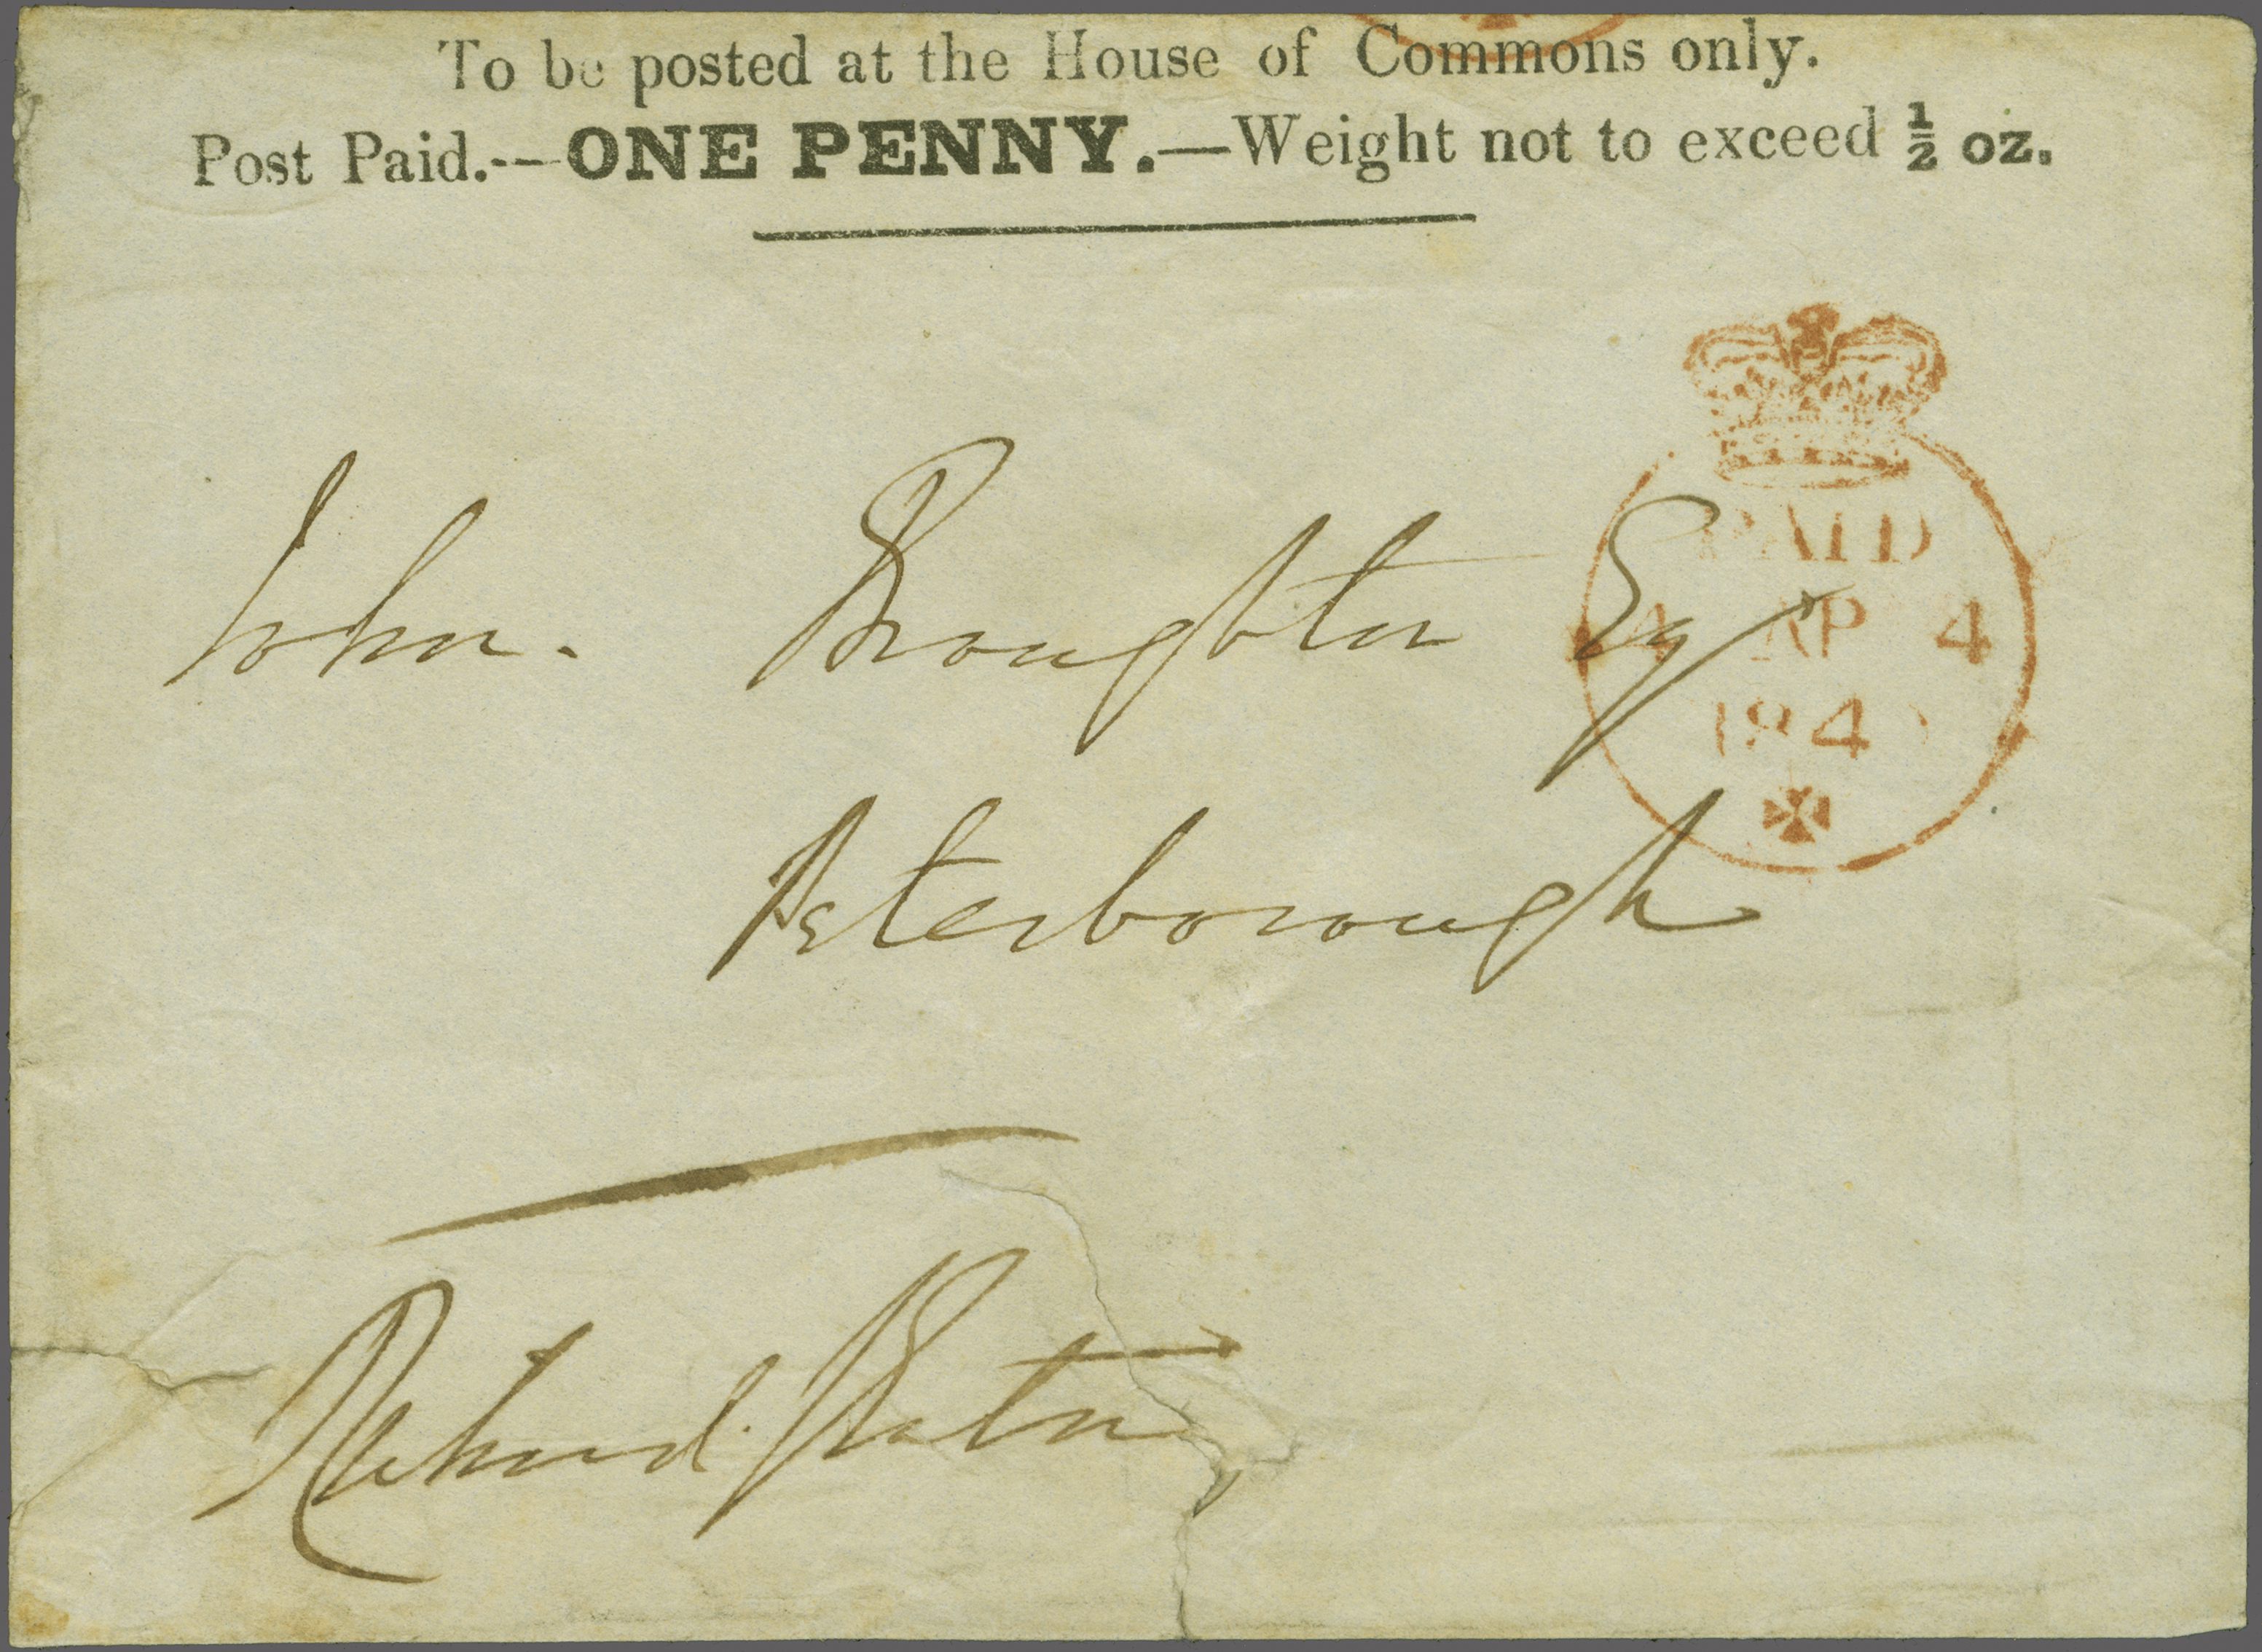 To be posted at the House of Commons only.
Post Paid.--ONE PENNY.—Weight not to exceed ½ oz.
PAID
4 AP 4
184
John. Broughton Esqr
Peterborough
Richard